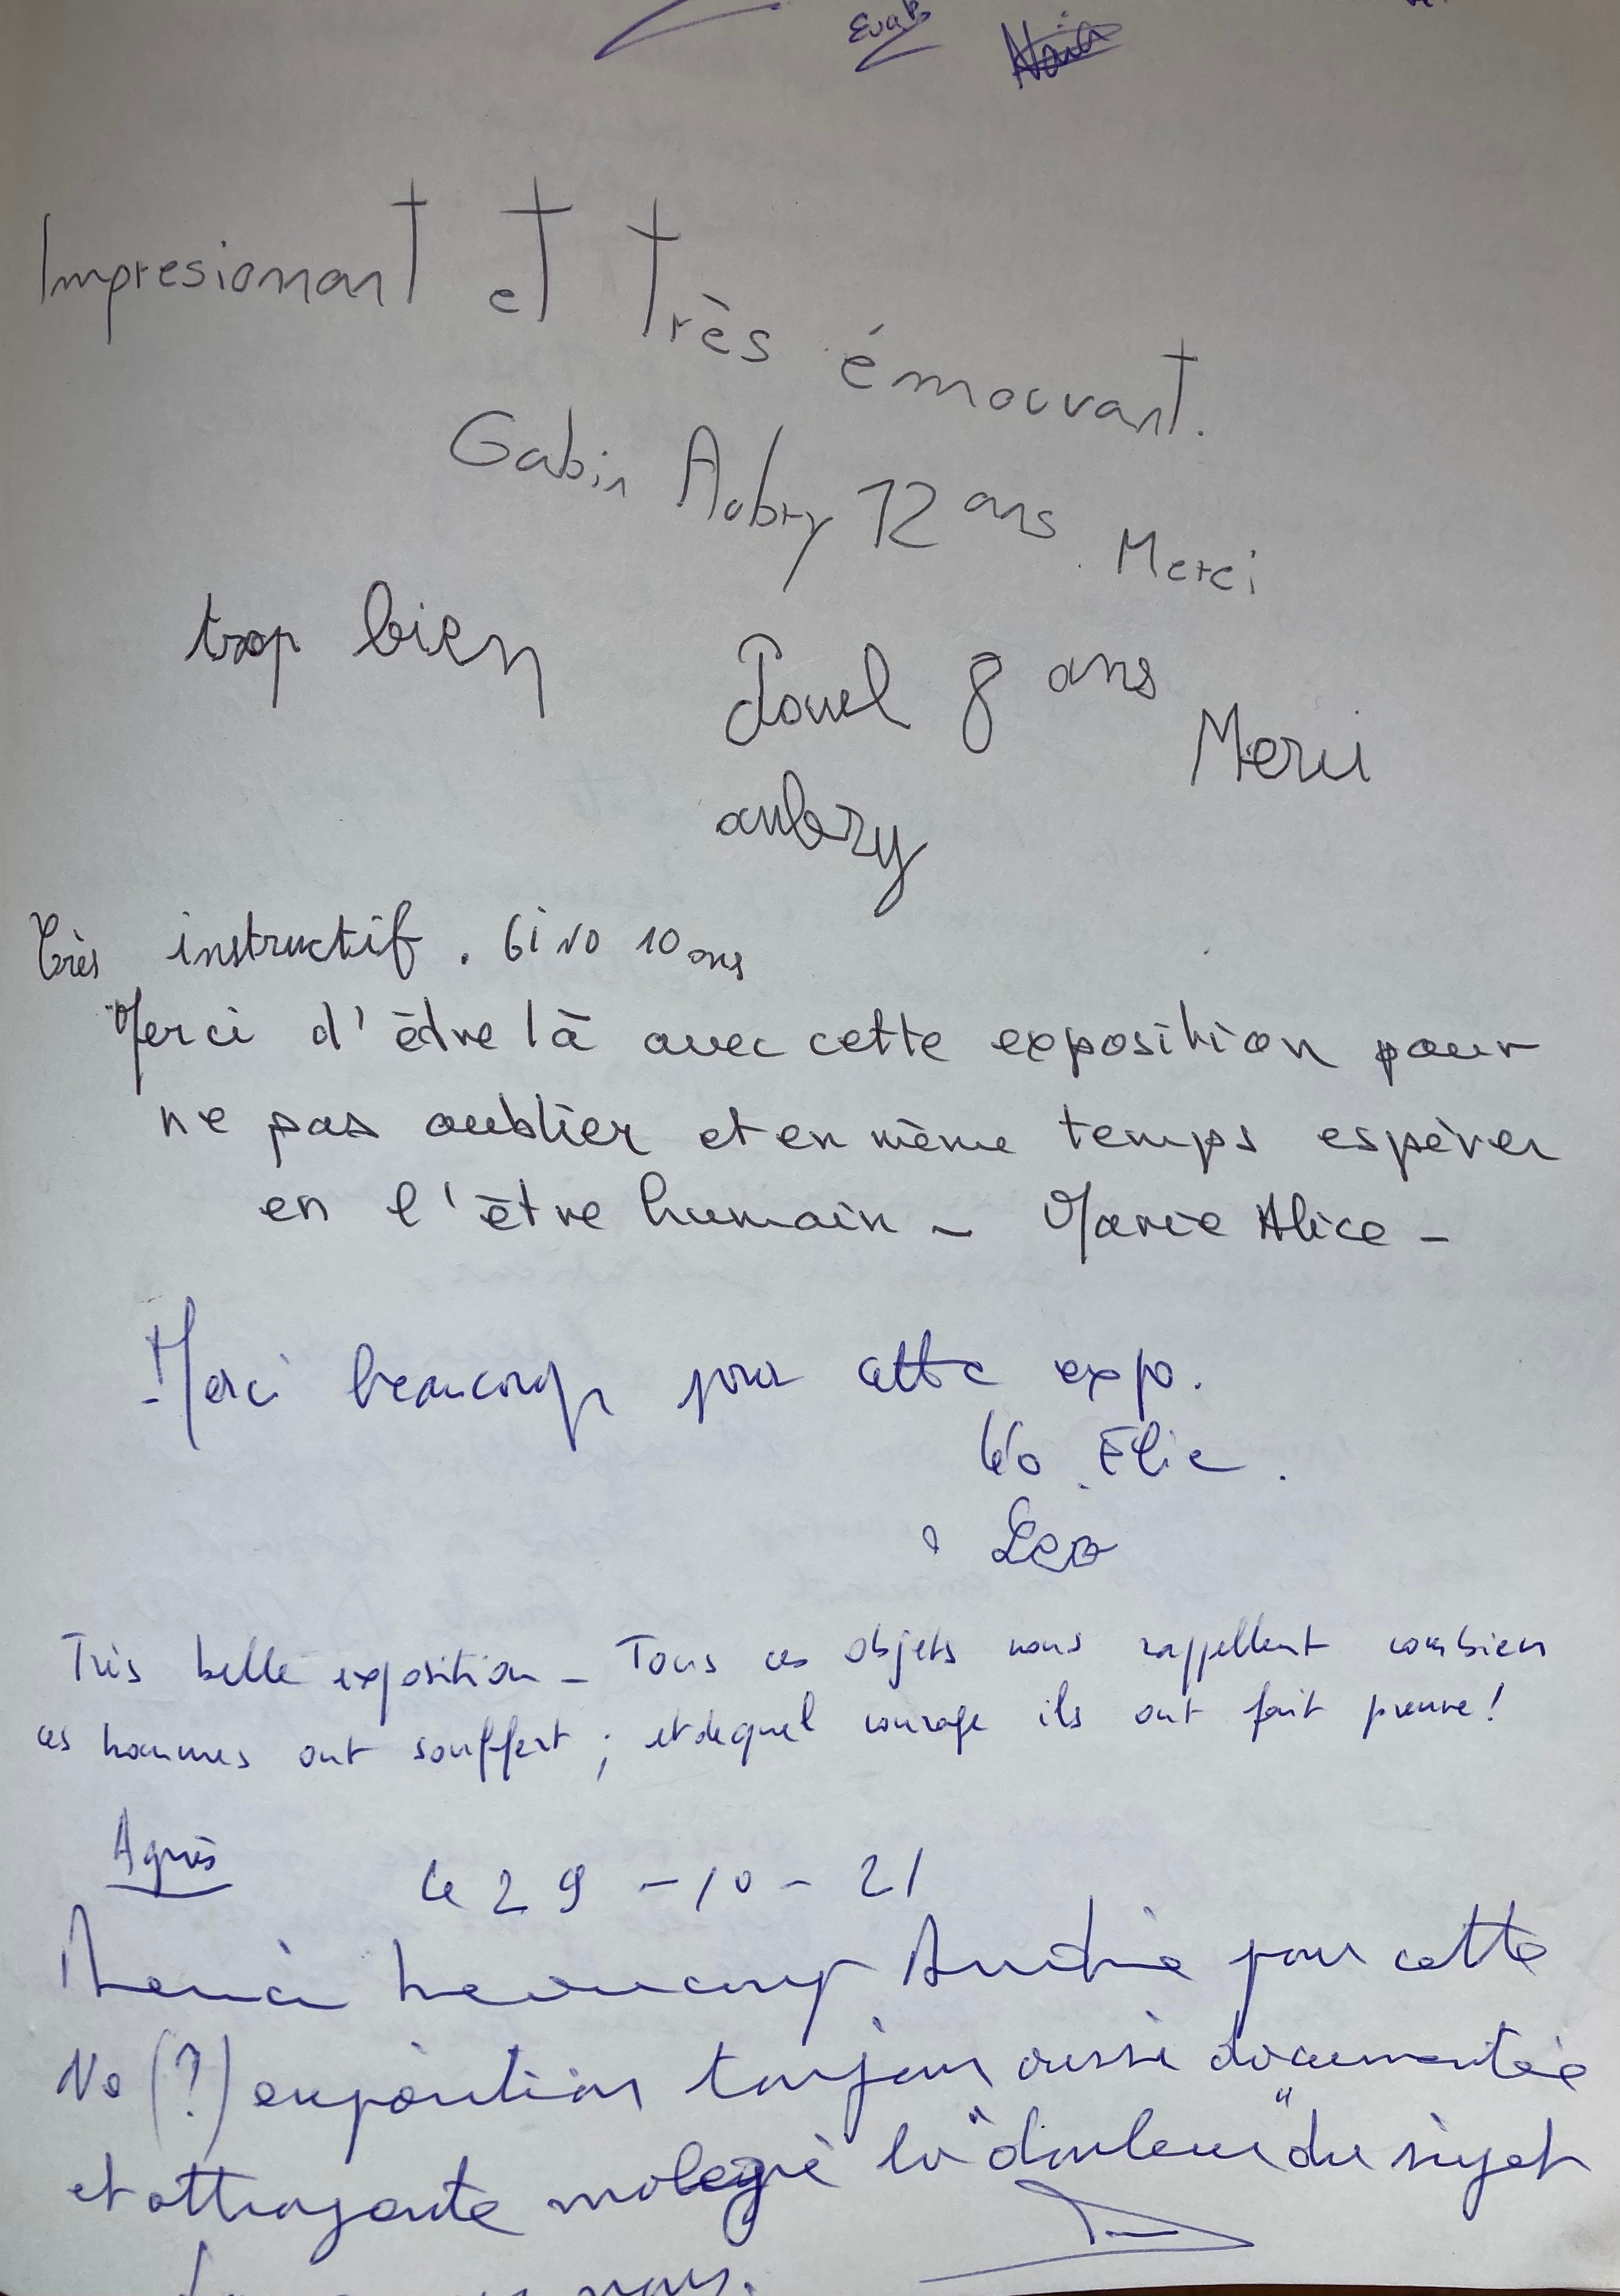 Impresionant et très émouvant.
Gabin Aubry 12 ans. Merci
trop bien Pawel 8 ans Merci
aubry
Très instructif. GiNO 10 ans
Merci d'être là avec cette exposition pour
ne pas oublier et en même temps espérer
en l'être humain - Marie Alice -
Merci beaucoup pour cette expo.
Elie.
Leo
Très belle exposition - Tous ces objets nous rappellent combien
ces hommes ont souffert ; et de quel courage ils ont fait preuve !
Agnès le 29-10-21
Merci beaucoup André pour cette
No (?) exposition toujours aussi documentée
et attrayante malgré la "douleur" du sujet